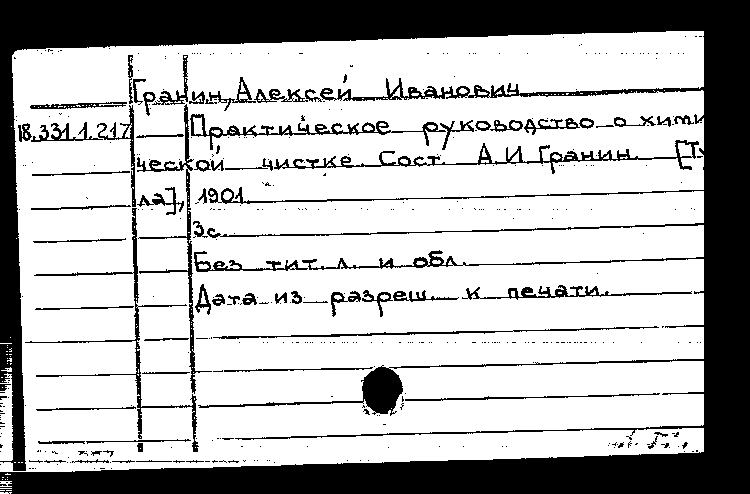 Гранин, Алексей Иванович
18.331.1.217 Практическое руководство о хими
ческой чистке. Сост. А.И.Гранин. [Ту
ла], 1901.
3с.
Без тит. л. и обл.
Дата из разреш. к печати.